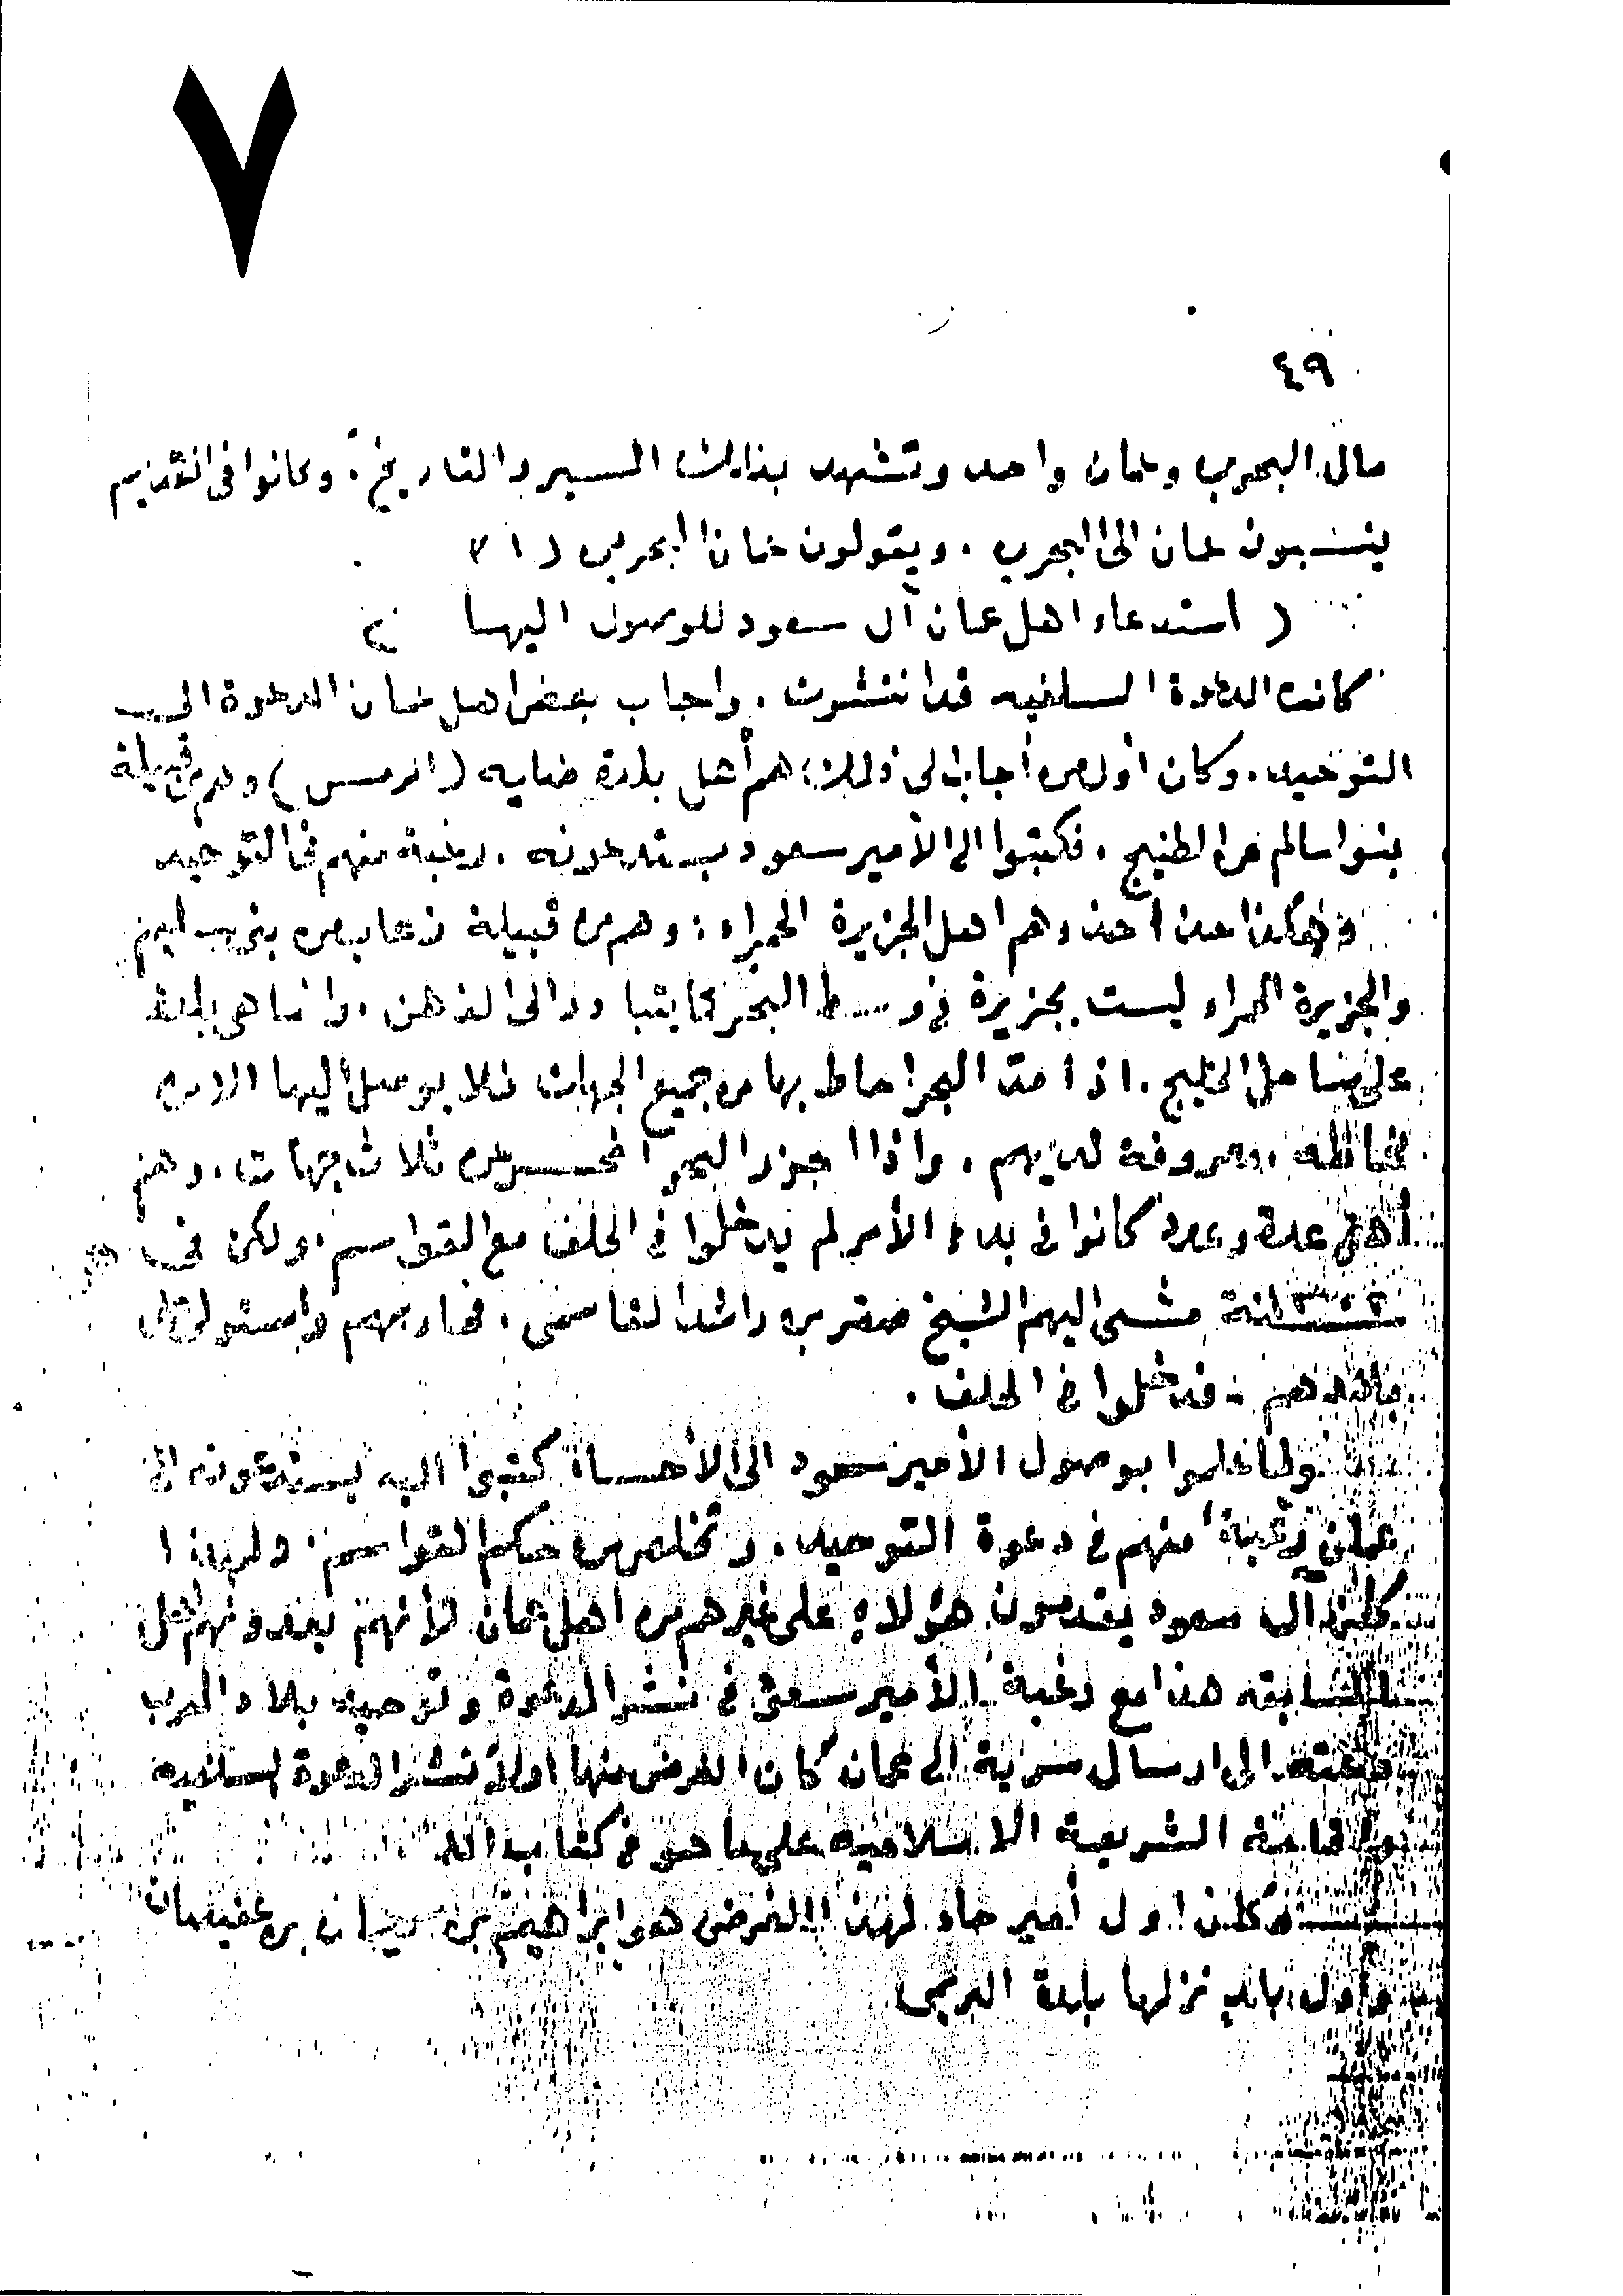 ٧
٤٩
مال البحرين وعمان واحد وتشهد بذلك السير والتاريخ. وكانوا فى القديم
ينسبون عمان الى البحرين . ويقولون عمان البحرين ( ١ )
( استدعاء اهل عمان آل سعود للوصول اليها )
كانت الدعوة السلفيه قد انتشرت . واجاب بعض اهل عمان الدعوة الى
التوحيد . وكان أول من أجاب الى ذلك : هم أهل بلدة ضايه ( الرمس ) وهم من قبيلة
بنوا سالم من الطنيج . فكتبوا الى الأمير سعود يستدعونه . رغبة منهم فى التوحيد
وهكذا وهم اهل الجزيرة الحمراء : وهم من قبيلة زعاب من
والجزيرة الحمراء ليست بجزيرة فى وسط البحر كما يتبادر الى الذهن . وانما هى بلدة
على ساحل الخليج . اذا مد البحر احاط بها من جميع الجهات فلا يوصل اليها الا من
معروفة لديهم . واذا جزر البحر انحسر من ثلاث جهات . وهم
أهل عدة وعدد كانوا فى بدء الأمر لم يدخلوا فى الحلف مع القواسم . ولكن فى
سنة مشى اليهم الشيخ صقر بن راشد القاسمى . فحاربهم واستولى على
بلادهم : فدخلوا فى الحلف .
ولما علموا بوصول الأمير سعود الى الأحساء كتبوا اليه يستدعونه الى
عمان رغبة منهم فى دعوة التوحيد . وتخلص من حكم القواسم . ولهذا
كان آل سعود يقدمون هؤلاء على غيرهم من اهل عمان لأنهم يعدونهم اهل
السابقه هذا مع رغبة الأمير سعود فى نشر الدعوة وتوحيد بلاد العرب
دعته الى ارسال سرية الى عمان كان الغرض منها اولا نشر الدعوة السلفيه
الشريعة الاسلاميه على ما هو فى كتاب الله
وكان اول أمير جاء لهذا الغرض هو ابراهيم بن بن عفيصان
واول بلد نزلها بلدة البريمى